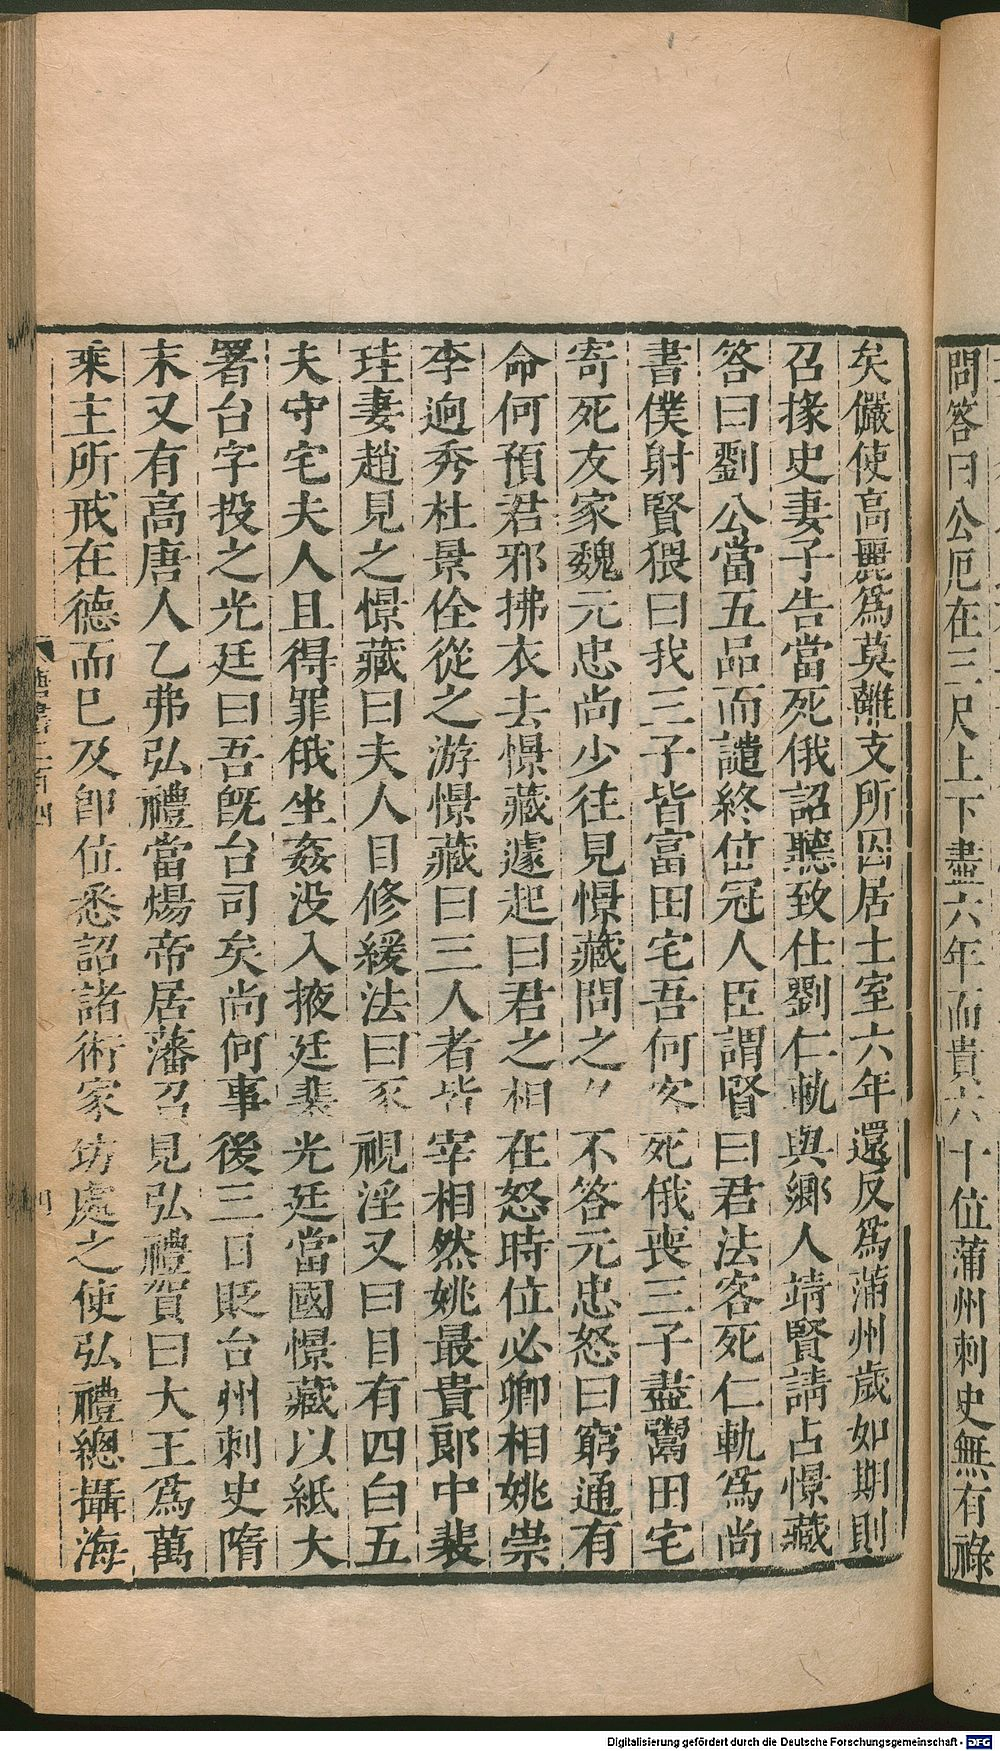 問答曰公厄在三尺土下盡六年而貴六十位蒲州刺史無有祿
矣儼使高麗爲莫離支所囚居土室六年還及爲蒲州歲如期則
召掾史妻子告當死俄詔聽致仕劉仁軌與鄉人靖賢請占憬藏
答曰劉公當五品而譴終位冠人臣謂賢曰君法客死仁軌爲尚
書僕射賢猥曰我三子皆富田宅吾何客死俄喪三子盡鬻田宅
寄死友家魏元忠尚少往見憬藏問之久不答元忠怒曰窮通有
命何預君邪拂衣去憬藏遽起曰君之相在怒時位必卿相姚崇
李迥秀杜景佺從之游憬藏曰三人者皆宰相然姚最貴郎中裴
珪妻趙見之憬藏曰夫人目修緩法曰豕視淫又曰目有四白五
夫守宅夫人且得罪俄坐姦没入掖廷裴光廷當國憬藏以紙大
署台字投之光廷曰吾旣台司矣尚何事後三日貶台州刺史隋
末又有高唐人乙弗弘禮當煬帝居藩召見弘禮賀曰大王爲萬
乘主所戒在德而已及卽位悉詔諸術家坊處之使弘禮總攝海
Digitalisierung gefördert durch die Deutsche Forschungsgemeinschaft - DFG